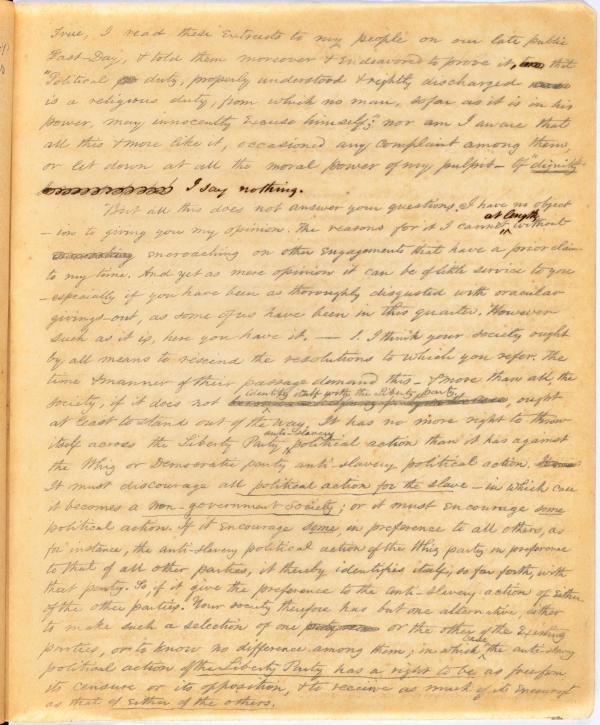 True, I read these Extracts to my people on our late public
Fast-Day, & told them moreover & Endeavored to prove it, that
"Political duty, properly understood & rightly discharged
is a religious duty, from which no man, so far as it is in his
power, may innocently Excuse himself;" nor am I aware that
all this & more like it, occasioned any complaint among them,
or let down at all the moral power of my pulpit – Of "dignity"
I say nothing.
But all this does not answer your questions. I have no object
at length
- ion to giving you my opinion. The reasons for it I cannot, without
encroaching on other Engagements that have a prior claim
to my time. And yet as mere opinion it can be of little service to you
– especially if you have been as thoroughly disgusted with oracular
givings-out, as some of us have been in this quarter. However
such as it is, here you have it. — 1. I think your society ought
by all means to rescind the resolutions to which you refer. The
time & manner of their passage demand this – & more than all, the
identify itself with the Liberty party,
society, if it does not ought
at least to stand out of the way. It has no more right to throw
anti-slavery
itself across the Liberty Party political action than it has against
the Whig or Democratic party anti-slavery political action.
It must discourage all political action for the slave – in which case
it becomes a non-government society; or it must Encourage some
political action. If it Encourage some in preference to all others, as
for instance, the anti-slavery political action of the Whig party in preference
to that of all other parties, it thereby identifies itself, so far forth, with
that party. So, if it give the preference to the anti-slavery action of Either
of the other parties. Your society therefore has but one alternative, either
to make such a selection of one or the other of the Existing
case
parties, or to know no difference among them; in which the anti-slavery
political action of the Liberty Party has a right to be as free from
its censure or its opposition, & to receive as much of its Encouragt
as that of Either of the others.